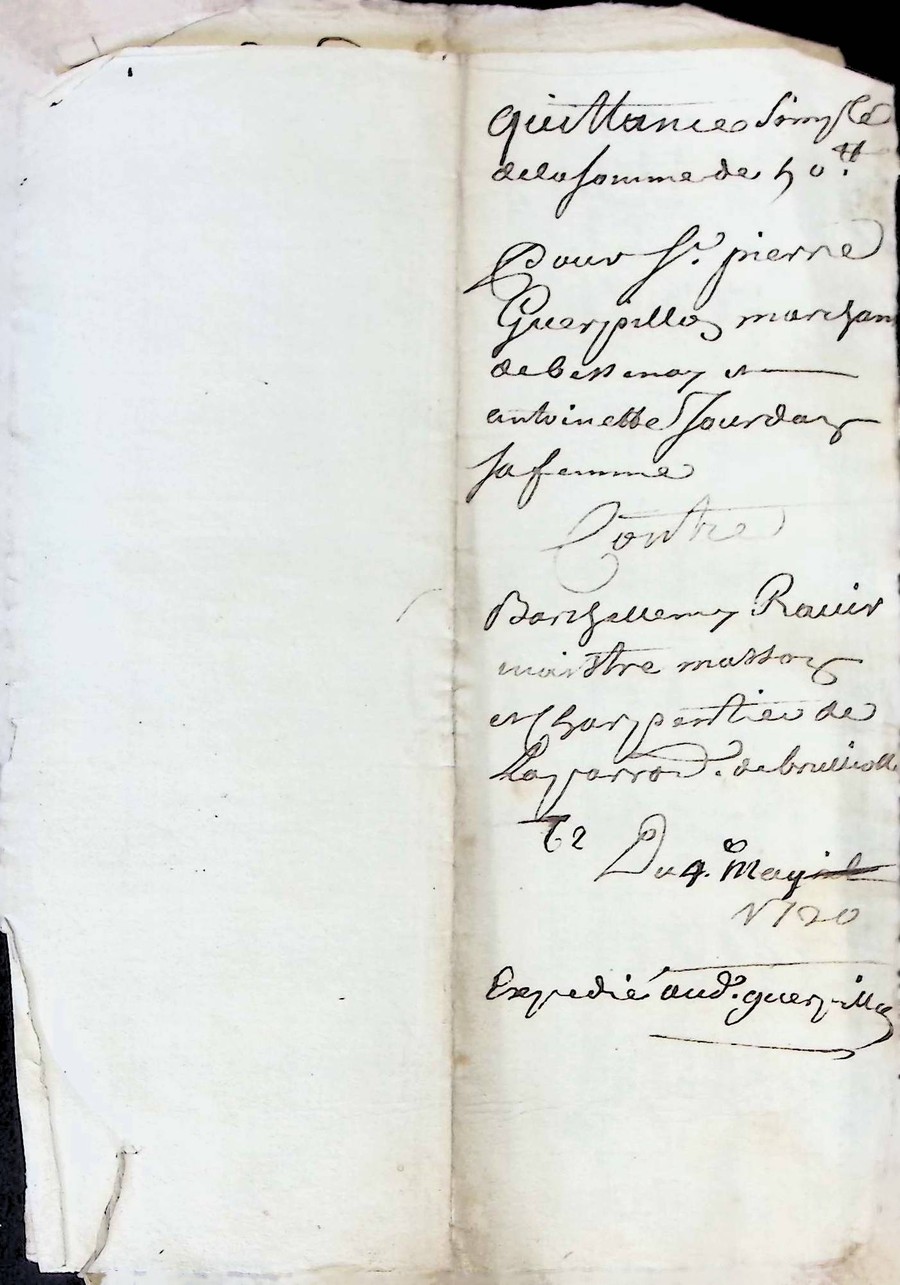 quittance simple
de la somme de 50.tt
Pour Sr. pierre
Guerpillon marchan
de bessenay et
antoinette Jourdan
sa femme
Contre
Barthellemy Rauier
maistre masson
et Charpentier de
de brullioll
Du 4.e May
1720
Expedié aud. guerpillon